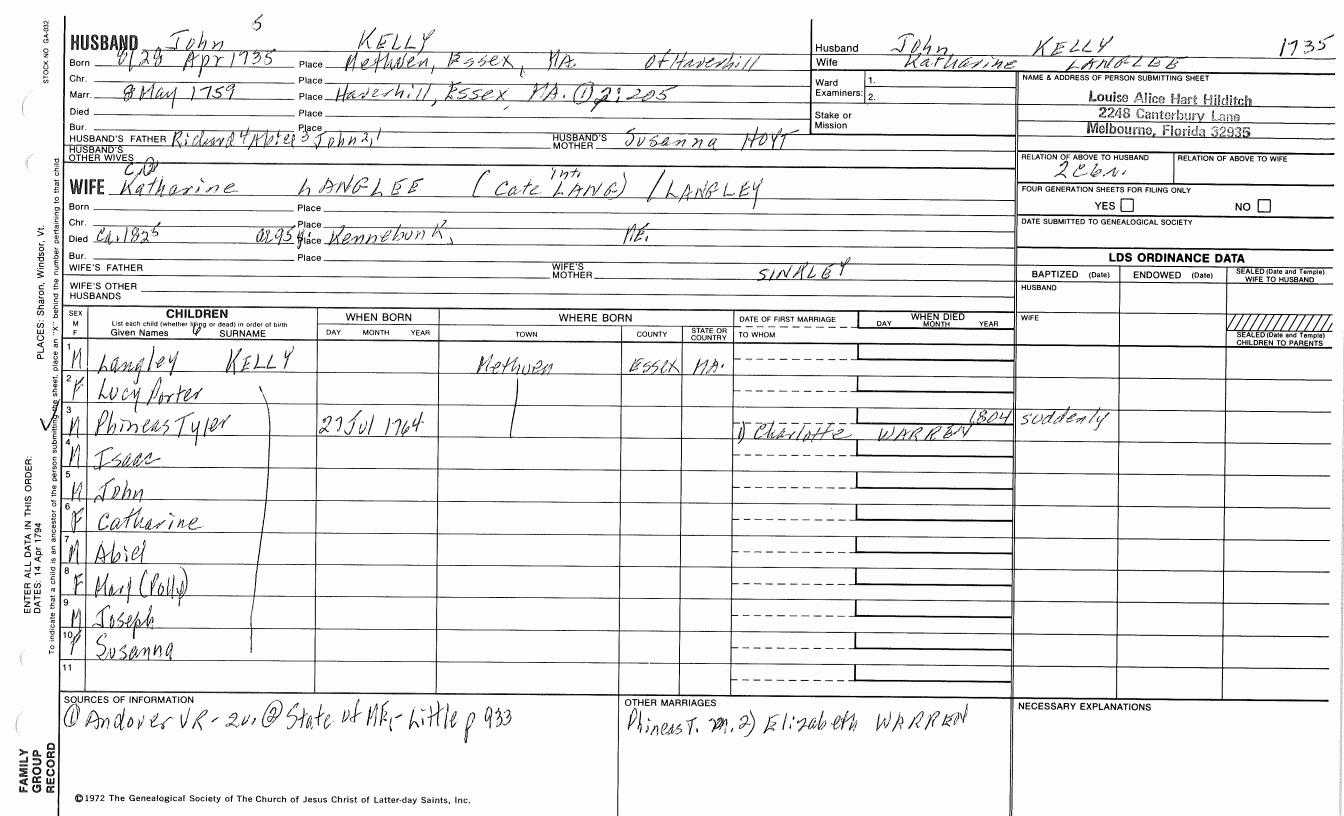 5
HUSBAND John KELLY
Born 28 Apr 1735 Place Methuen, Essex, MA. of Haverhill
Chr. Place
Marr. 8 May 1759 Place Haverhill, Essex, MA. ① 2:205
Died Place
Bur. Place
HUSBAND'S FATHER Richard 4 Abiel 3 John 2,1 HUSBAND'S MOTHER Susanna HOYT
HUSBAND'S OTHER WIVES
WIFE Katharine LANGLEE (Cate LANG) int. / LANGLEY
Born Place
Chr. Place
Died ca. 1825 Place Kennebunk, ME.
Bur. Place
WIFE'S FATHER WIFE'S MOTHER SINKLEY
WIFE'S OTHER HUSBANDS
Husband John KELLY 1735
Wife Katharine LANGLEE
Ward Examiners: 1.
2.
Stake or Mission
NAME & ADDRESS OF PERSON SUBMITTING SHEET
Louise Alice Hart Hilditch
2248 Canterbury Lane
Melbourne, Florida 32935
RELATION OF ABOVE TO HUSBAND RELATION OF ABOVE TO WIFE
FOUR GENERATION SHEETS FOR FILING ONLY
YES NO
DATE SUBMITTED TO GENEALOGICAL SOCIETY
LDS ORDINANCE DATA
BAPTIZED (Date) ENDOWED (Date) SEALED (Date and Temple) WIFE TO HUSBAND
HUSBAND
WIFE
SEALED (Date and Temple) CHILDREN TO PARENTS
SEX M F
CHILDREN
List each child (whether living or dead) in order of birth
Given Names 6 SURNAME
WHEN BORN
DAY MONTH YEAR
WHERE BORN
TOWN COUNTY STATE OR COUNTRY
DATE OF FIRST MARRIAGE
TO WHOM
WHEN DIED
DAY MONTH YEAR
1 M Langley KELLY Methuen Essex MA.
2 F Lucy Porter
3 M Phineas Tyler 27 Jul 1764 1) Charlotte WARREN 1804 suddenly
4 M Isaac
5 M John
6 F Catharine
7 M Abiel
8 F Mary (Polly)
9 M Joseph
10 F Susanna
11
SOURCES OF INFORMATION
① Andover VR - 2v. ② State of ME. - Little p 933
OTHER MARRIAGES
Phineas T. m. 2) Elizabeth WARREN
NECESSARY EXPLANATIONS
©1972 The Genealogical Society of The Church of Jesus Christ of Latter-day Saints, Inc.
STOCK NO. GA-032
PLACES: Sharon, Windsor, Vt.
ENTER ALL DATA IN THIS ORDER:
DATES: 14 Apr 1794
To indicate that a child is an ancestor of the person submitting the sheet, place an "X" behind the number pertaining to that child.
FAMILY GROUP RECORD